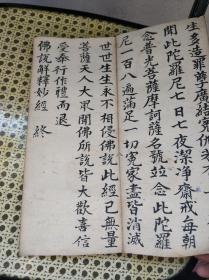 生多造罪孽广結冤仇若不
聞此陀羅尼七日七夜潔淨齋戒每朝
念普光菩薩摩訶薩名號並念此陀羅
尼一百八遍滿足一切冤家盡皆消滅
世世生生永不相侵佛說此經已無量
菩薩天人大眾聞佛所說皆大歡喜信
受奉行作禮而退
佛說解釋妙經 終